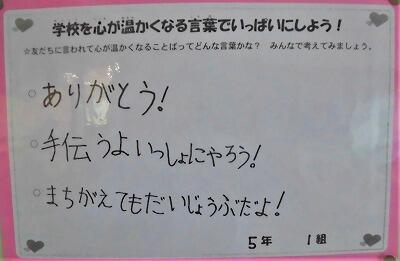 学校を心が温かくなる言葉でいっぱいにしよう！
☆友だちに言われて心が温かくなることばってどんな言葉かな？　みんなで考えてみましょう。
○ありがとう！
○手伝うよいっしょにやろう！
○まちがえてもだいじょうぶだよ！
5年　1組